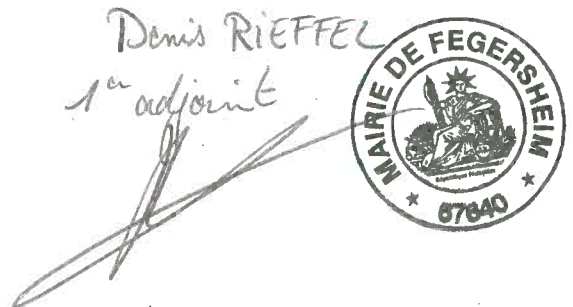 Denis RIEFFEL
1er adjoint
MAIRIE DE FEGERSHEIM
République Française
* 67640 *